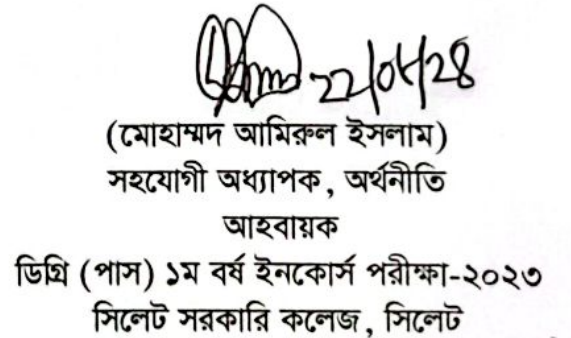 ২২/০৮/২৪
(মোহাম্মদ আমিরুল ইসলাম)
সহযোগী অধ্যাপক, অর্থনীতি
আহবায়ক
ডিগ্রি (পাস) ১ম বর্ষ ইনকোর্স পরীক্ষা-২০২৩
সিলেট সরকারি কলেজ, সিলেট